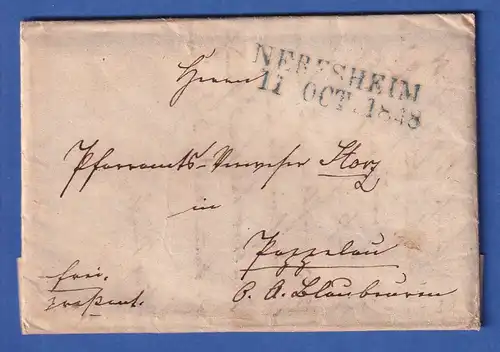 NERESHEIM
11 OCT. 1848
Herrn
Pfarramts-Verweser Storz
in
Pappelau
O. A. Blaubeuren
frei.